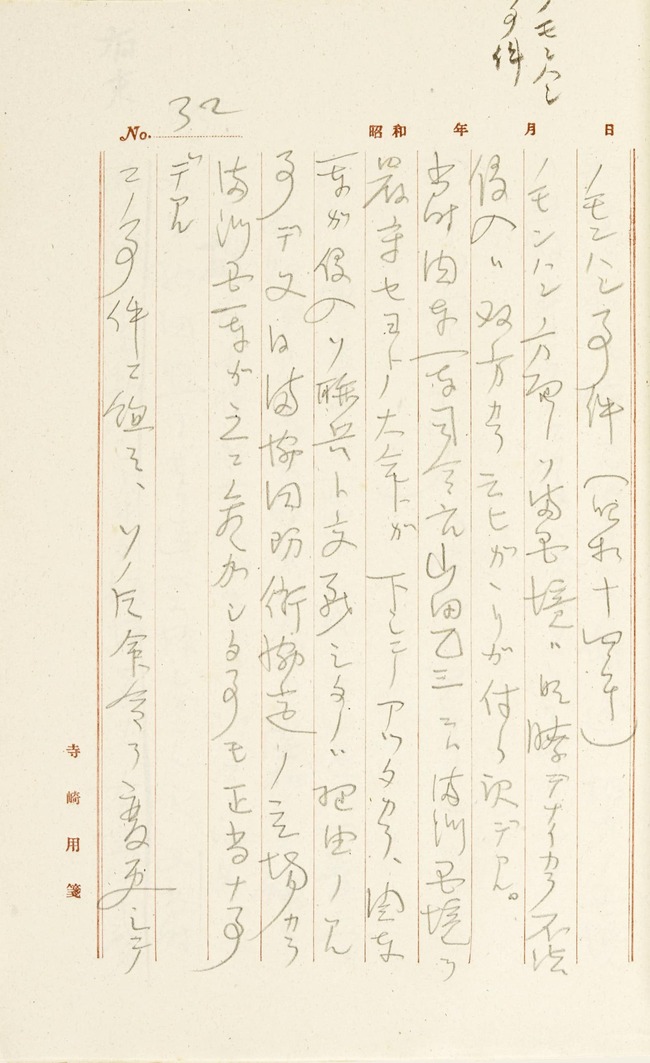 ノモンハン
事件
No. 32
昭和 年 月 日
ノモンハン事件(昭和十四年)
ノモンハンノ方面ノソ満国境ハ明瞭デナイカラ不法
侵入ハ双方カラ云ヒがゝりが付く訳デアル。
当時関東軍司令官山田乙三ニハ満洲国境ヲ
厳守セヨトノ大命が下シテアツタカラ、関東
軍が侵入ソ聯兵ト交戦シタノハ理由ノアル
事デ又日満協同防衛協定ノ立場カラ
満洲国軍が之ニ参加シタ事モ正当ナ事
デアル
コノ事件ニ鑑ミ、ソノ后命令ヲ変更シテ
寺崎用箋